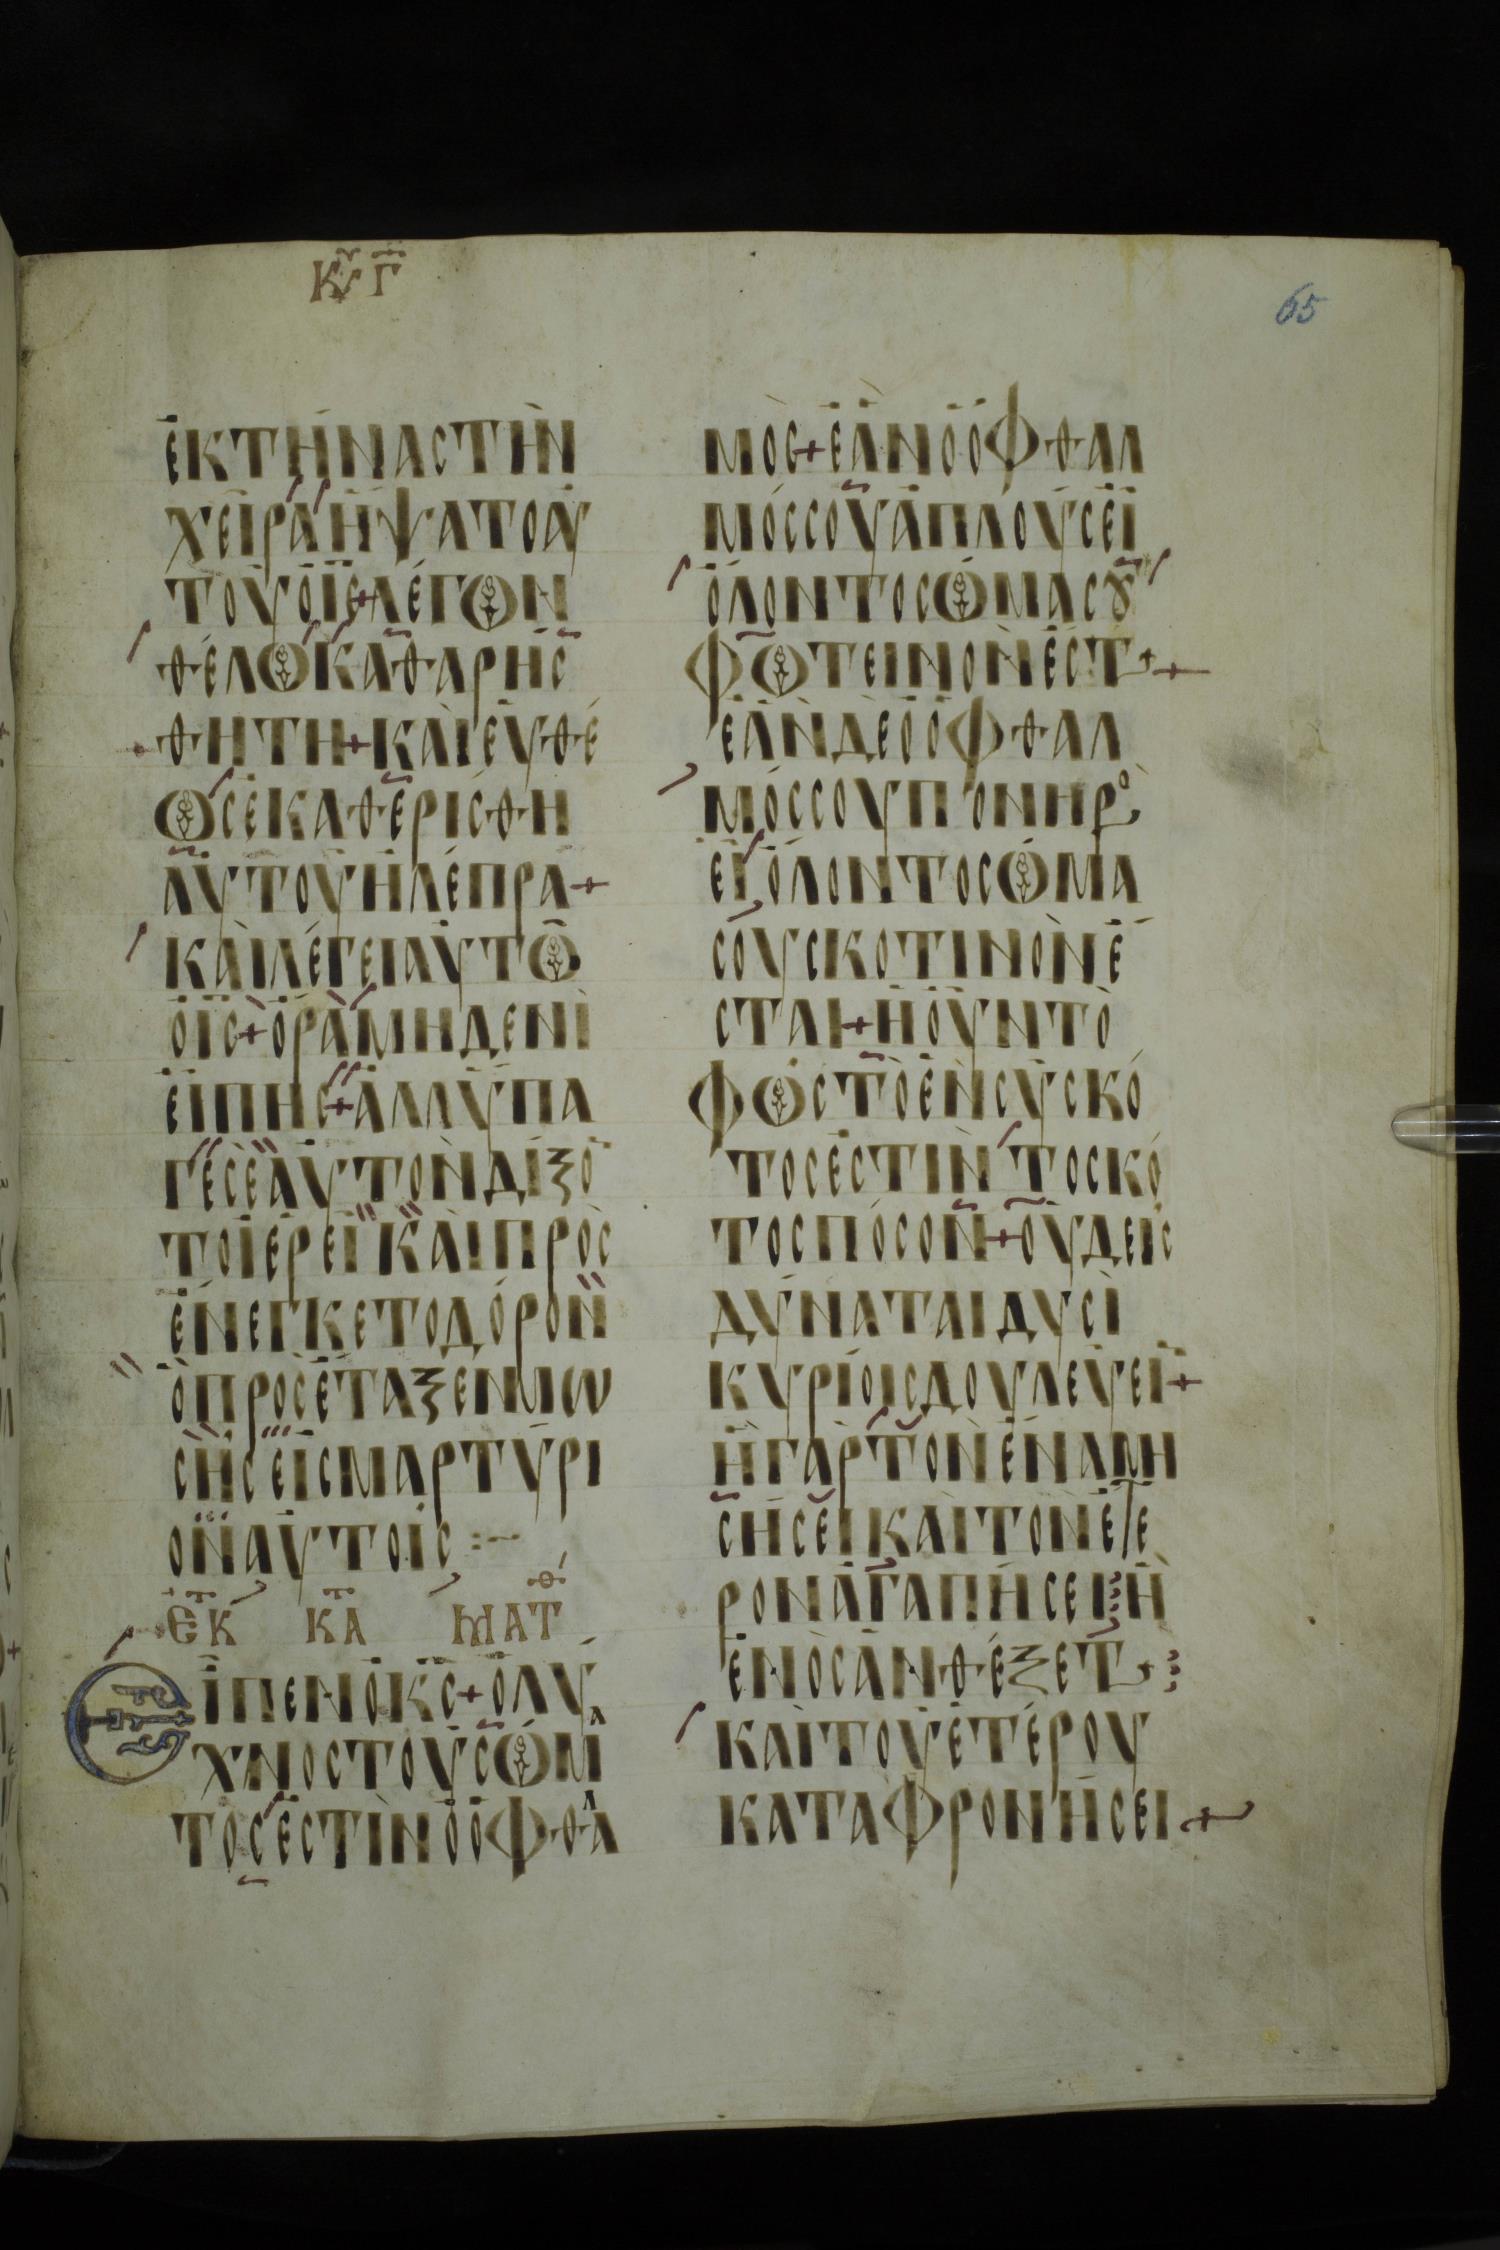 ΚΥ Γ
65
ΕΚΤΗΝΑϹΤΗΝ
ΧΕΙΡΑΗΨΑΤΟΑΥ
ΤΟΥΟΙϹ+ΛΕΓΩΝ
ΘΕΛΩΚΑΘΑΡΗϹ
ΘΗΤΗ+ΚΑΙΕΥΘΕ
ΩϹΕΚΑΘΕΡΙϹΘΗ
ΑΥΤΟΥΗΛΕΠΡΑ+
ΚΑΙΛΕΓΕΙΑΥΤΩ
ΟΙϹ+ΟΡΑΜΗΔΕΝΙ
ΕΙΠΗϹ+ΑΛΛΥΠΑ
ΓΕϹΕΑΥΤΟΝΔΙΞΟ
ΤΟΙΕΡΕΙΚΑΙΠΡΟϹ
ΕΝΕΓΚΕΤΟΔΟΡΟΝ
ΟΠΡΟϹΕΤΑΞΕΝΜΩ
ϹΗϹΕΙϹΜΑΡΤΥΡΙ
ΟΝΑΥΤΟΙϹ :~
ΕΚ ΚΑ ΜΑΤΘ
ΕΙΠΕΝΟΚϹ+ΟΛΥ
ΧΝΟϹΤΟΥϹΩΜΑ
ΤΟϹΕϹΤΙΝΟΟΦΘΑΛ
ΜΟϹ+ΕΑΝΟΟΦΘΑΛ
ΜΟϹϹΟΥΑΠΛΟΥϹΕΙ
ΟΛΟΝΤΟϹΩΜΑϹȢ
ΦΩΤΕΙΝΟΝΕϹΤ+
ΕΑΝΔΕΟΟΦΘΑΛ
ΜΟϹϹΟΥΠΟΝΗΡΟ
ΕΙΟΛΟΝΤΟϹΩΜΑ
ϹΟΥϹΚΟΤΙΝΟΝΕ
ϹΤΑΙ+ΗΟΥΝΤΟ
ΦΩϹΤΟΕΝϹΥϹΚΟ
ΤΟϹΕϹΤΙΝΤΟϹΚΟ
ΤΟϹΠΟϹΟΝ+ΟΥΔΕΙϹ
ΔΥΝΑΤΑΙΔΥϹΙ
ΚΥΡΙΟΙϹΔΟΥΛΕΥΕΙ+
ΗΓΑΡΤΟΝΕΝΑΜΗ
ϹΗϹΕΙΚΑΙΤΟΝΕΤΕ
ΡΟΝΑΓΑΠΗϹΕΙΗ
ΕΝΟϹΑΝΘΕΞΕΤ
ΚΑΙΤΟΥΕΤΕΡΟΥ
ΚΑΤΑΦΡΟΝΗϹΕΙ+